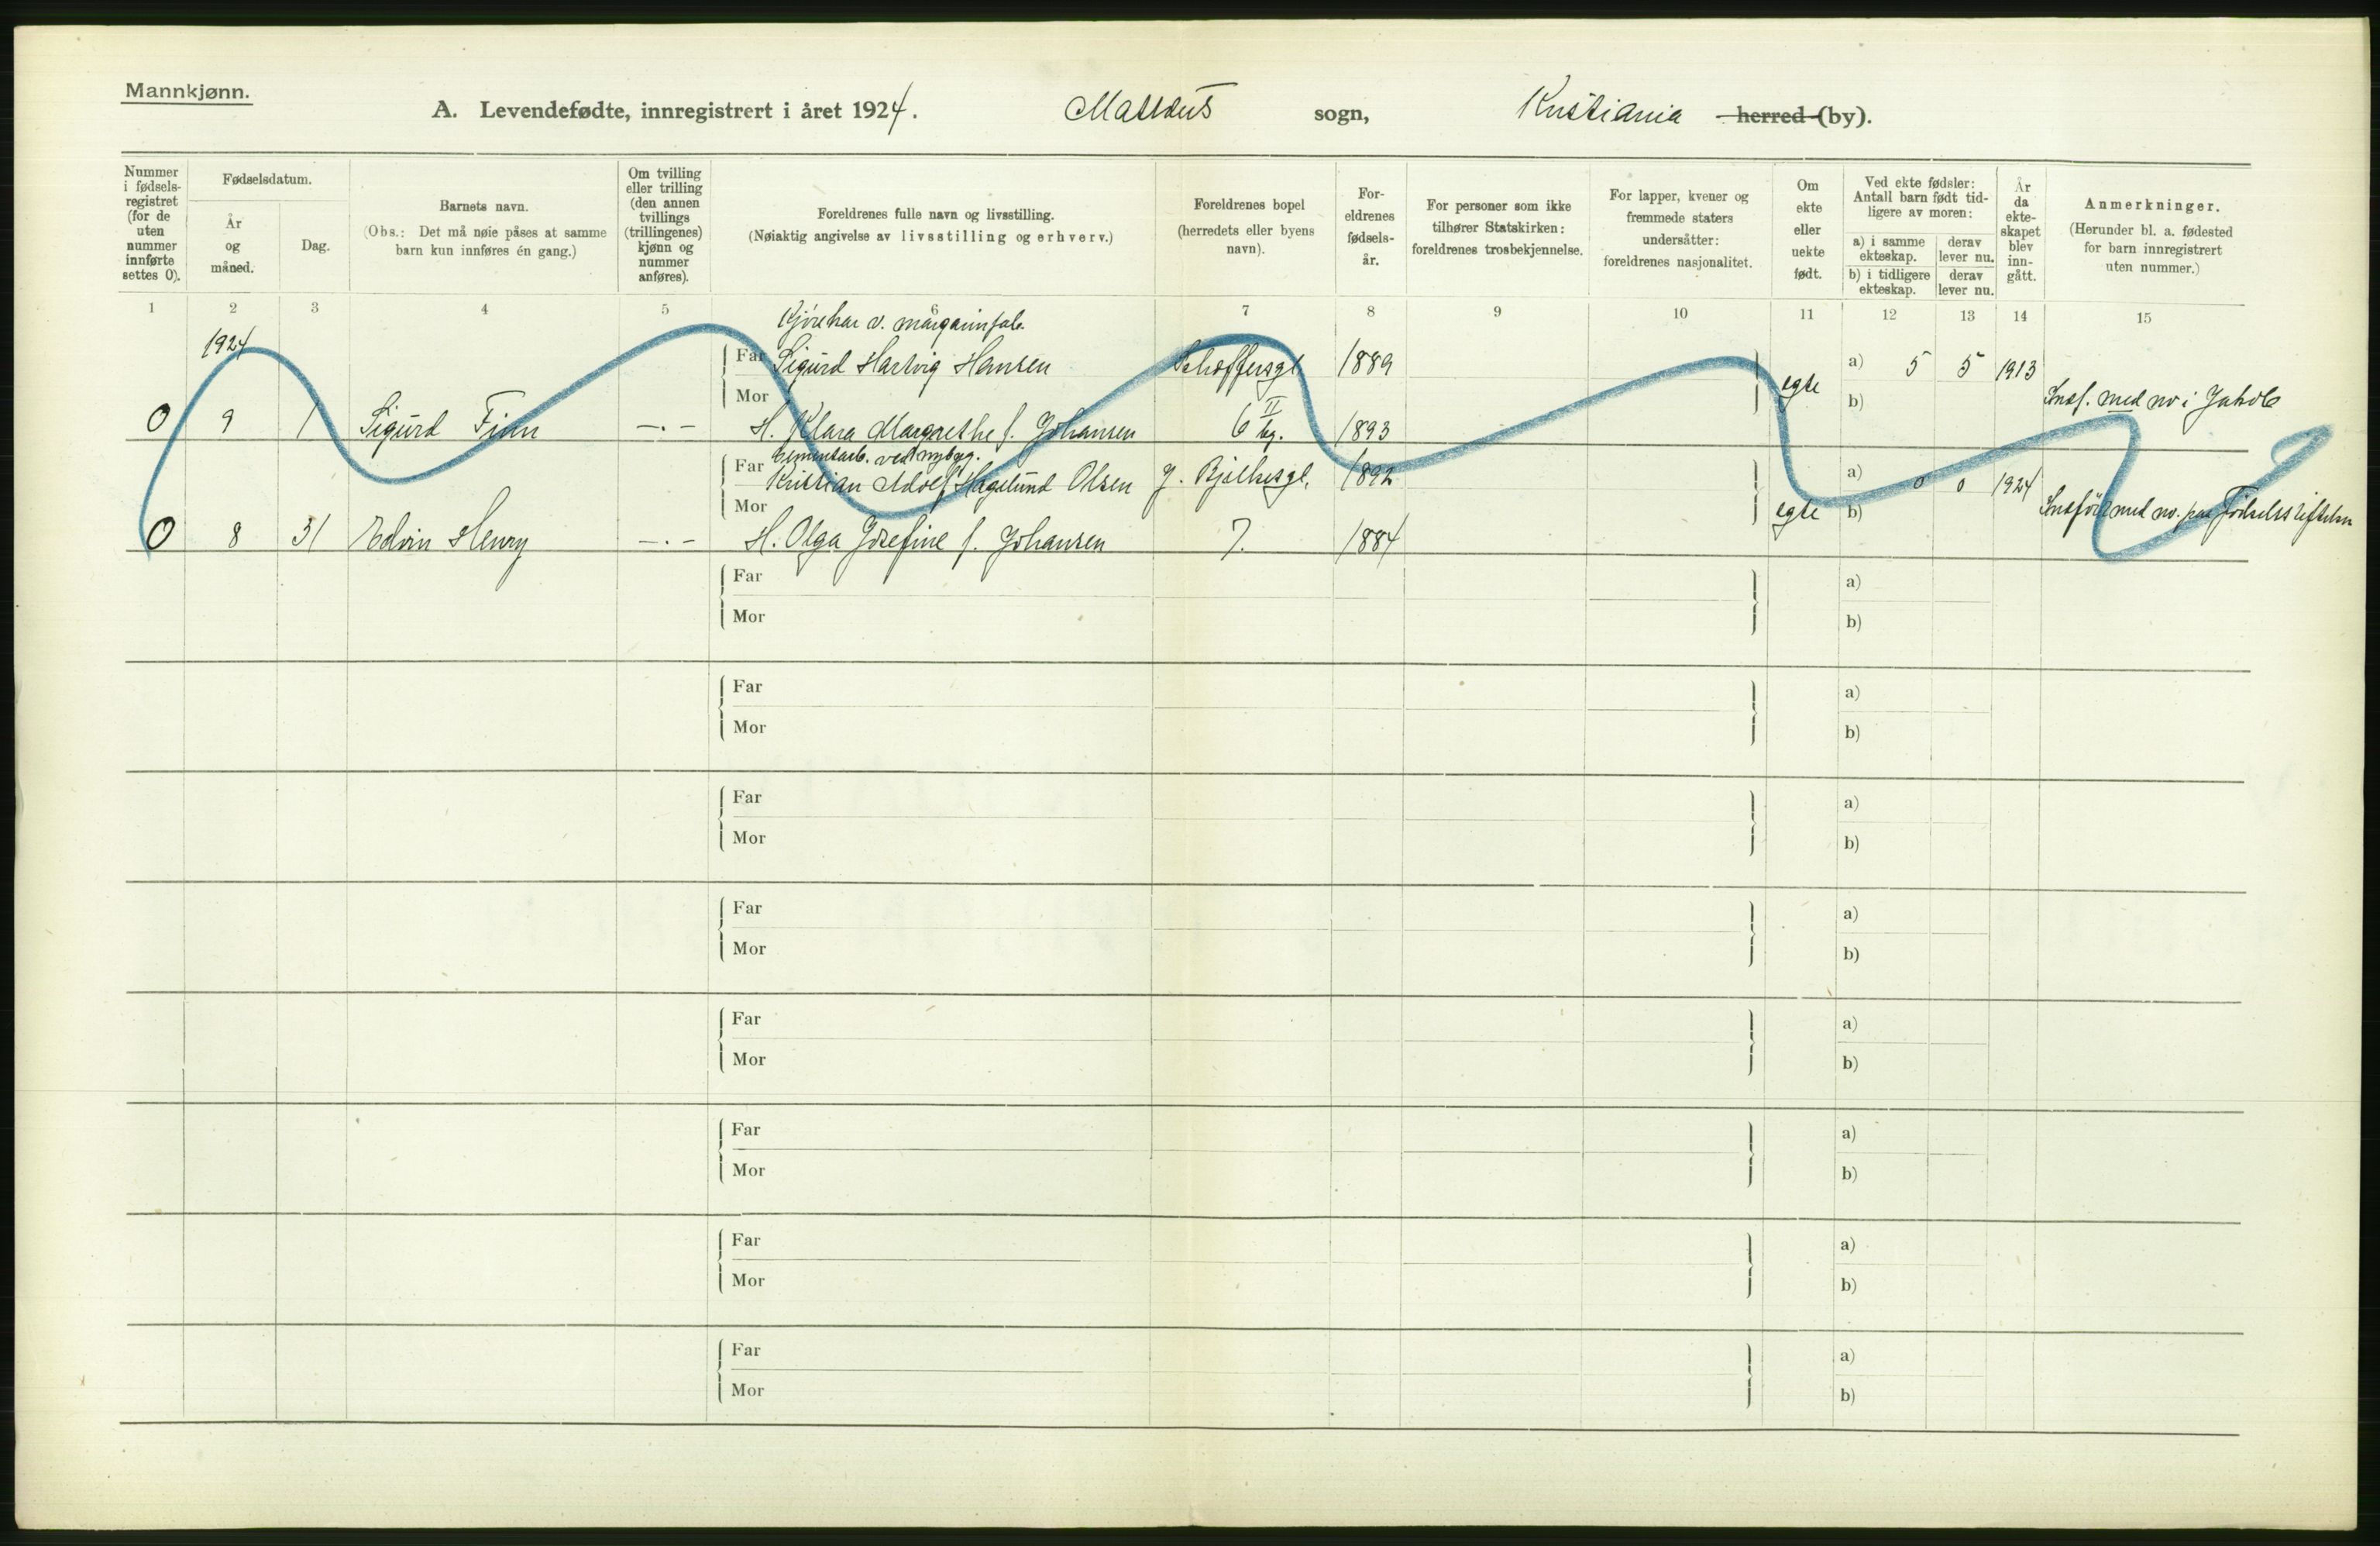 Mannkjønn.
A. Levendefødte, innregistrert i året 1924. Matteus sogn, Kristiania herred (by).
Nummer i fødsels-registret (for de uten nummer innførte settes 0).
Fødselsdatum.
År og måned.
Dag.
Barnets navn.
(Obs.: Det må nøie påses at samme barn kun innføres én gang.)
Om tvilling eller trilling (den annen tvillings (trillingenes) kjønn og nummer anføres).
Foreldrenes fulle navn og livsstilling.
(Nøiaktig angivelse av livsstilling og erhverv.)
Foreldrenes bopel (herredets eller byens navn).
For-eldrenes fødsels-år.
For personer som ikke tilhører Statskirken: foreldrenes trosbekjennelse.
For lapper, kvener og fremmede staters undersåtter: foreldrenes nasjonalitet.
Om ekte eller uekte født.
Ved ekte fødsler: Antall barn født tid-ligere av moren:
a) i samme ekteskap. derav lever nu.
b) i tidligere ekteskap. derav lever nu.
År da ekte-skapet blev inn-gått.
Anmerkninger.
(Herunder bl. a. fødested for barn innregistrert uten nummer.)
1 2 3 4 5 6 7 8 9 10 11 12 13 14 15
1924 Kjørekar v. margarinfab.
Far Sigurd Hartvig Hansen 1889 a) 5 5 1913
Mor egte b)
0 9 1 Sigurd Finn —·— H. Klara Margrethe f. Johansen 6 II 1893 Indf. med no i Jakob
Far Kristian Adolf Hagelund Olsen 1892 a) 0 0 1924
Mor egte b)
0 8 31 Edvin Henry —·— H. Olga Josefine f. Johansen 7. 1884 Indført med no. paa Fødselsstiftelsen
Far a)
Mor b)
Far a)
Mor b)
Far a)
Mor b)
Far a)
Mor b)
Far a)
Mor b)
Far a)
Mor b)
Far a)
Mor b)
Far a)
Mor b)